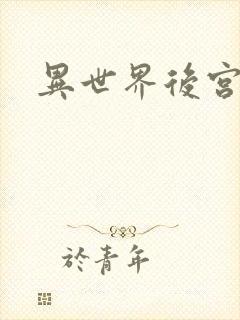 異世界後宮
於青年